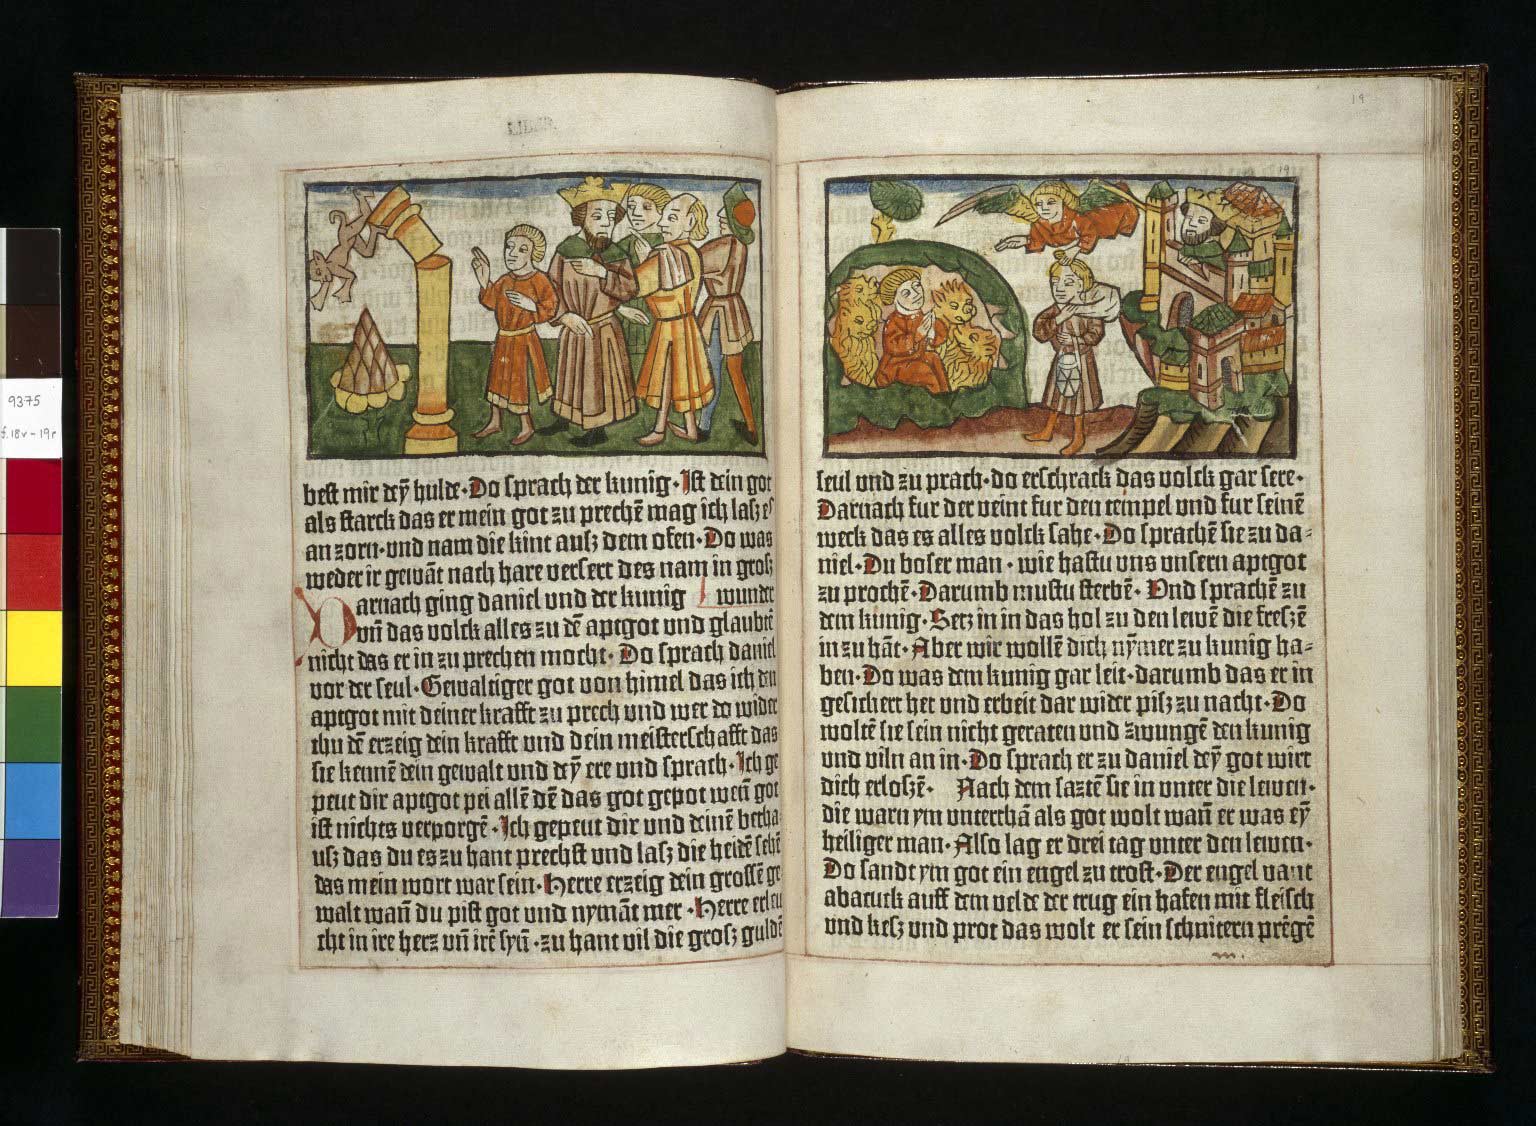 9375
f. 18v - 19r
LIBER
best mir deȳ hulde · Do sprach der kunig · Ist dein got
als starck das er mein got zu prechē mag ich lasz es
an zorn · und nam die kint ausz dem ofen · Do was
weder ir gewāt nach hare versert des nam in grosz
Darnach ging daniel und der kunig wunder
vn̄ das volck alles zu dē aptgot und glaubtē
nicht das er in zu prechen mocht · Do sprach daniel
vor der seul · Gewaltiger got von himel das ich den
aptgot mit deiner krafft zu prech und wer do wider
thu dē erzeig dein krafft und dein meisterschafft das
sie kennē dein gewalt und deȳ ere und sprach · Ich ge
peut dir aptgot pei allē dē das got gepot wen̄ got
ist nichts verporgē · Ich gepeut dir und deinē
usz das du es zu hant prechst und lasz die heidē sehē
das mein wort war sein · Herre erzeig dein grossē ge
walt wan̄ du pist got und nymāt mer · Herre erleu
cht in ire herz vn̄ irē syn̄ · zu hant vil die grosz guldē
19
19
seul und zu prach · do erschrack das volck gar sere ·
Darnach fur der veint fur den tempel und fur seinē
weck das es alles volck sahe · Do sprachē sie zu da=
niel · Du boser man · wie hastu uns unsern aptgot
zu prochē · Darumb mustu sterbē · Und sprachē zu
dem kunig · Setz in in das hol zu den lewē die freszē
in zu hāt · Aber wir wollē dich nȳmer zu kunig ha=
ben · Do was dem kunig gar leit · darumb das er in
gesichert het und erbeit dar wider pisz zu nacht · Do
woltē sie sein nicht geraten und zwungē den kunig
und viln an in · Do sprach er zu daniel deȳ got wirt
dich erloszē · Nach dem saztē sie in unter die lewen ·
die warn ym unterthā als got wolt wan̄ er was eȳ
heiliger man · Also lag er drei tag unter den lewen ·
Do sandt ym got ein engel zu trost · Der engel vant
abacuck auff dem velde der trug ein hafen mit fleisch
und kesz und prot das wolt er sein schnitern prēgē